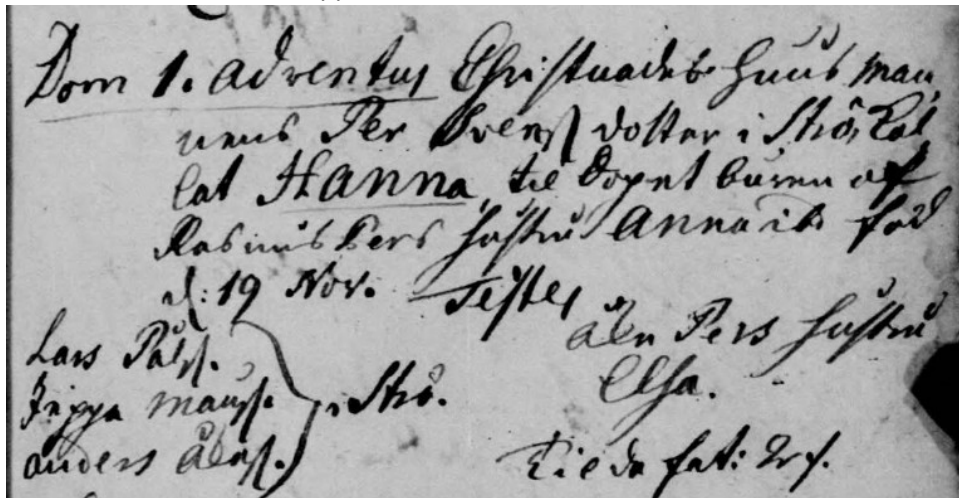 Dom 1. Adventus Christnades huus man
nens Per Svenss dotter i Strö, kal
lat Hanna, til dopet buren af
Rasmus Pers hustru Anna ib. föd
d: 19 Nov. Testes
Åke Pers hustru
Elsa.
Lars Pålss.
Jeppa Månss.
Anders Åkess.
i Strö.